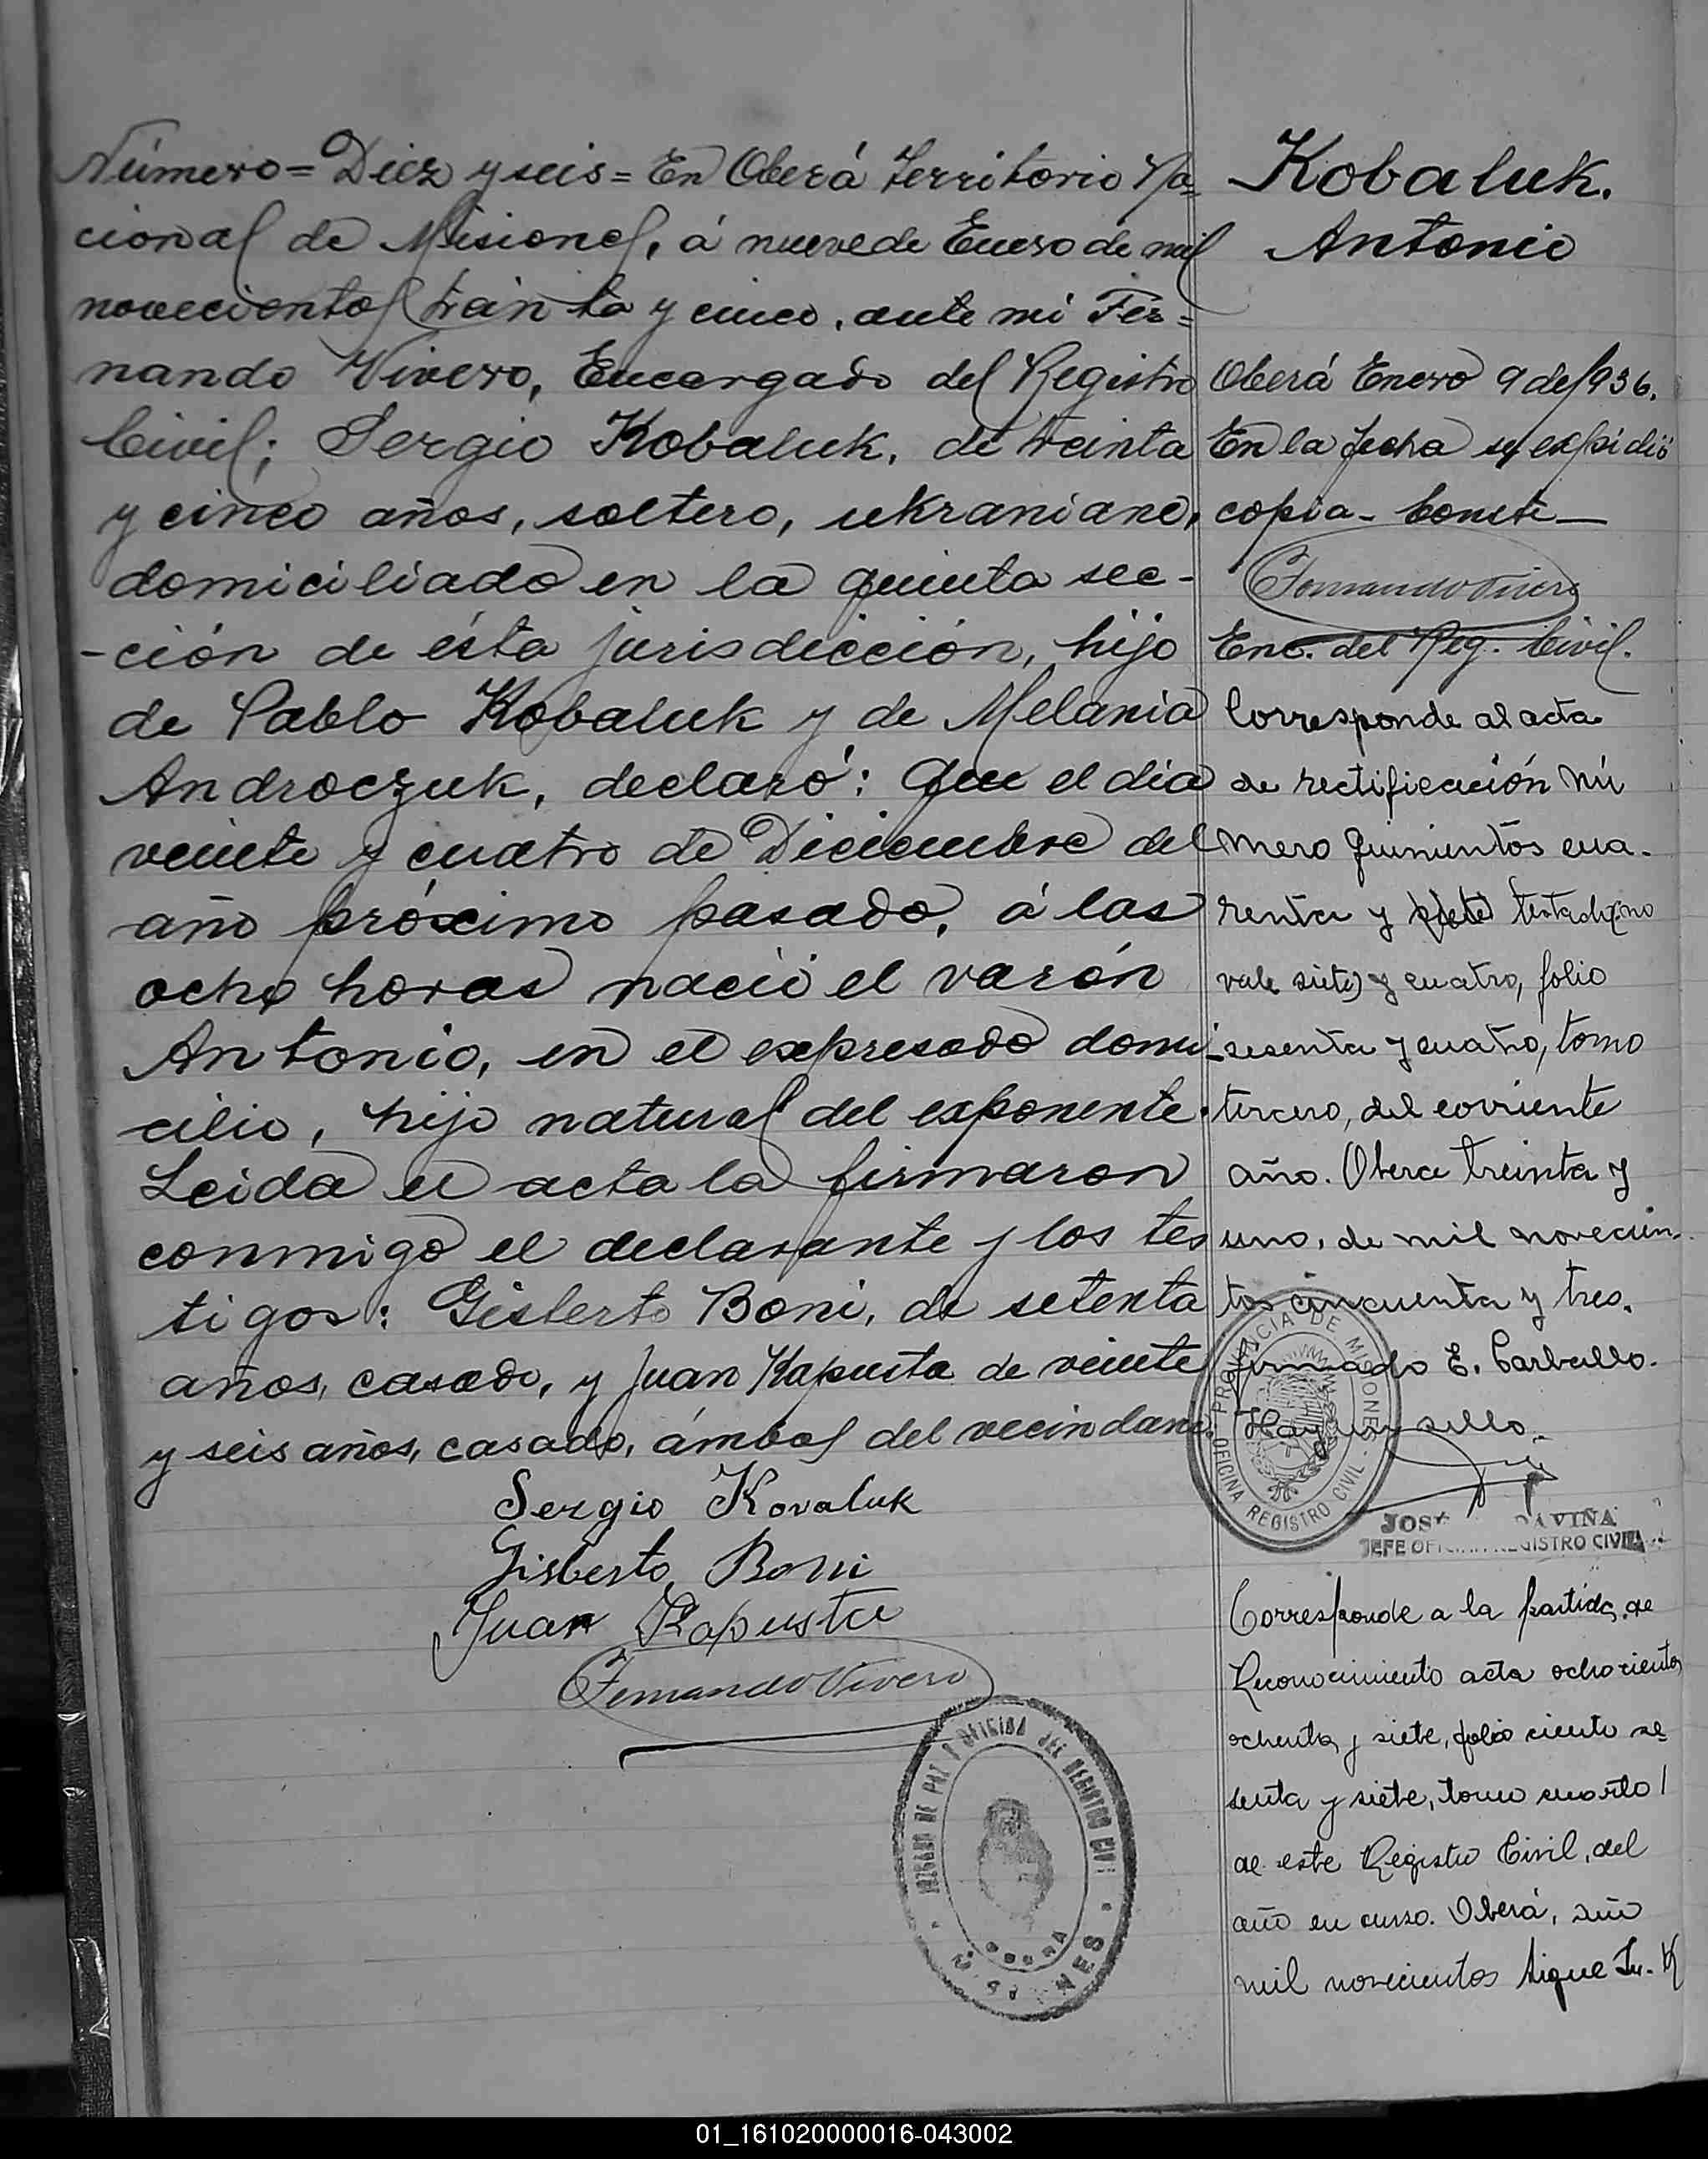 Número = Diez y seis = En Oberá Territorio Na=
cional de Misiones, á nueve de Enero de mil
novecientos treinta y cinco, ante mi Fer=
nando Vivero, Encargado del Registro
Civil; Sergio Kobaluk, de treinta
y cinco años, soltero, ukraniano,
domiciliado en la quinta sec-
-ción de ésta jurisdicción, hijo
de Pablo Kobaluk y de Melania
Androczuk, declaró: Que el día
veinte y cuatro de Diciembre del
año próximo pasado, á las
ocho horas nació el varón
Antonio, en el expresado domi-
cilio, hijo natural del exponente.
Leida el acta la firmaron
conmigo el declarante y los tes
tigos: Gisberto Boni, de setenta
años, casado, y Juan Kapusta de veinte
y seis años, casado, ámbos del vecindario.
Sergio Kovaluk
Gisberto Boni
Juan Kapusta
Fernando Vivero
JUZGADO DE PAZ Y OFICINA DEL REGISTRO CIVIL
OBERA
MISIONES
Kobaluk.
Antonio
Oberá Enero 9 de 1936.
En la fecha se expidió
copia - Conste -
Fernando Vivero
Enc. del Reg. Civil.
Corresponde al acta
de rectificación nú
mero quinientos cua-
renta y siete testado: no
vale siete) y cuatro, folio
sesenta y cuatro, tomo
tercero, del corriente
año. Obera treinta y
uno, de mil novecien-
tos cincuenta y tres.
firmado E. Carballo.
Hay un sello.
PROVINCIA DE MISIONES
OFICINA REGISTRO CIVIL
JOS AVIÑA
JEFE OFICINA REGISTRO CIVIL
Corresponde a la partida de
Reconocimiento acta ochocientos
ochenta y siete, folio ciento se
senta y siete, tomo cuarto
de este Registro Civil, del
año en curso. Oberá,
mil novecientos sigue
01_161020000016-043002